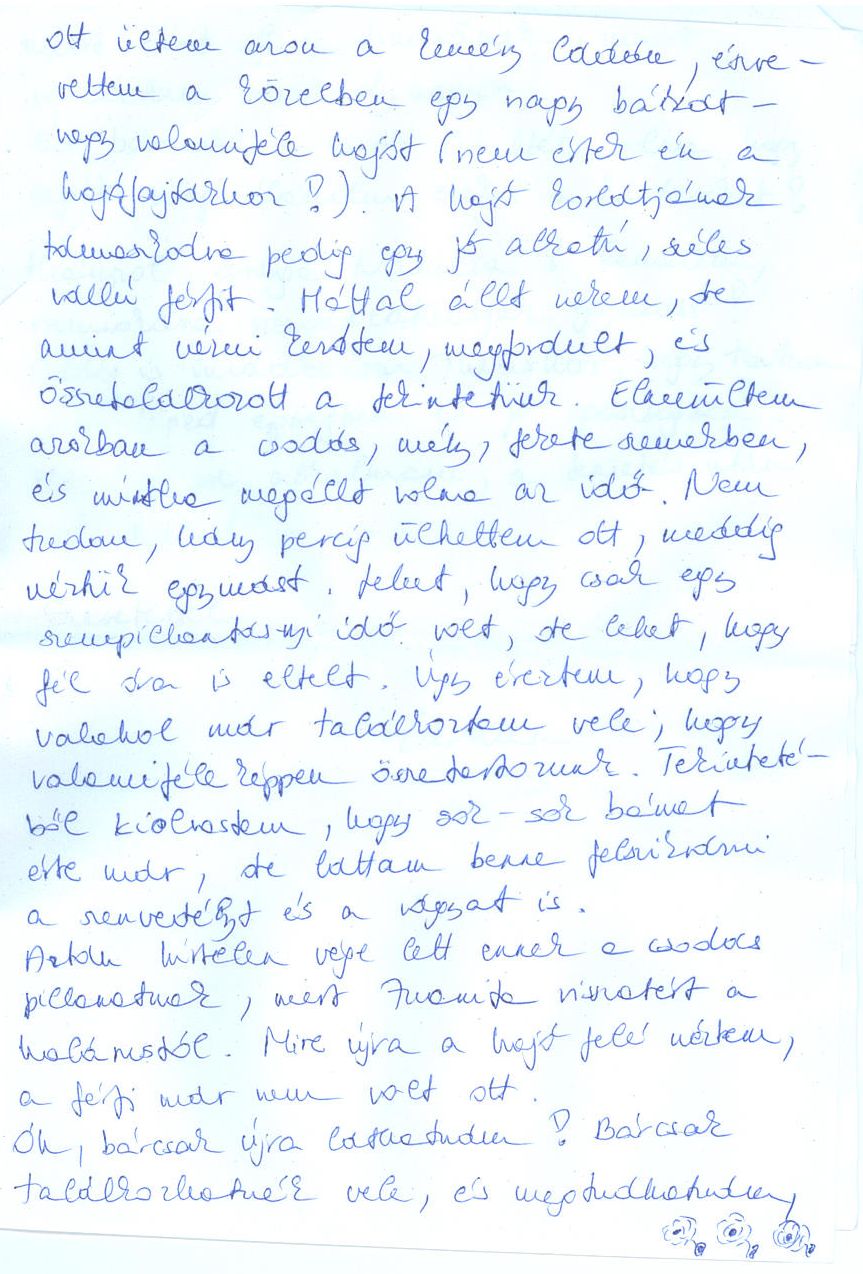 ott ültem azon a kemény ládán, észre-
vettem a közelben egy nagy bárkát -
vagy valamiféle hajót (nem értek én a
hajófajtákhoz!). A hajó korlátjának
támaszkodva pedig egy jó alkatú, széles
vállú férfit. Háttal állt nekem, de
amint nézni kezdtem, megfordult, és
összetalálkozott a tekintetünk. Elmerültem
azokban a csodás, mély, fekete szemekben,
és mintha megállt volna az idő. Nem
tudom, hány percig ülhettem ott, meddig
néztük egymást. Lehet, hogy csak egy
szempillantásnyi idő volt, de lehet, hogy
fél óra is eltelt. Úgy éreztem, hogy
valahol már találkoztam vele; hogy
valamiféleképpen összetartozunk. Tekinteté-
ből kiolvastam, hogy sok-sok bánat
érte már, de láttam benne felszikrázni
a szenvedélyt és a vágyat is.
Aztán hirtelen vége lett ennek a csodás
pillanatnak, mert Juanita visszatért a
halárustól. Mire újra a hajó felé néztem,
a férfi már nem volt ott.
Óh, bárcsak újra láthatnám! Bárcsak
találkozhatnék vele, és megtudhatnám,